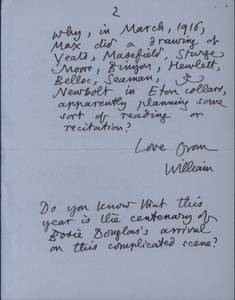 2
why, in March, 1916,
Max did a drawing of
Yeats, Masefield, Sturge
Moore, Binyon, Hewlett,
Belloc, Seaman, &
Newbolt in Eton collars,
apparently planning some
sort of reading or
recitation?
Love from
William
Do you know that this
year is the centenary of
Bosie Douglas's arrival
on this complicated scene?